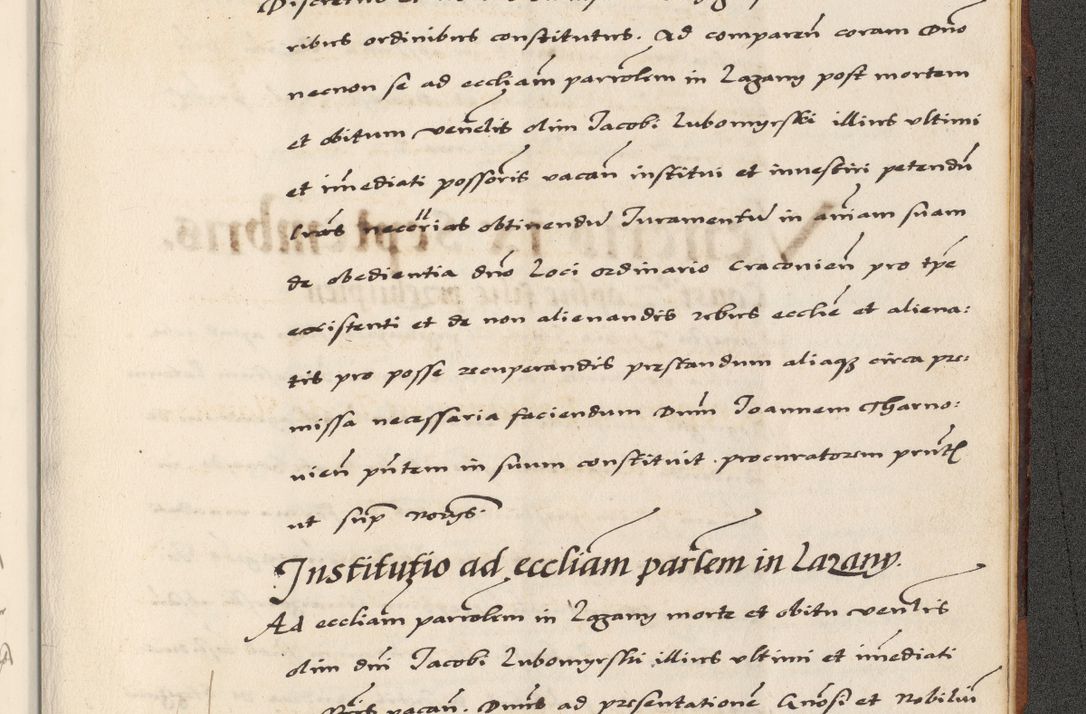 ribus ordinibus constitutus. Ad comparen̄ coram Dn̄o
necnon se ad eccliam̄ parrolem in Lazany post mortem
et obitum venēlis olim Iacobi Lubomyrskj illius ultimi
et im̄ediati possoris̄ vacan̄ institui et investiri petendū
lr̄as necōrias obtinendū Iuramentū in an̄iam suam
de obedientia dn̄o Loci ordinario Cracovien̄ pro tp̄e
existenti et de non alienandis rebus eccliē et aliena:
tis pro posse recuperandis prestandum aliaqꝫ circa pre:
missa necessaria faciendum Dn̄m Ioannem Tharno:
vien̄ pn̄tem in suum constituit procuratorem prn̄t
ut sup̄
Institutio ad eccliam̄ parlem̄ in Lazany.
Ad eccliam parrolem in Lazany morte et obitu venlis̄
olim dn̄i Iacobi Lubomyrski illius ultimi et im̄ediati
vacan̄. Dn̄us ad presentationē Gn̄osi et Nobiliū